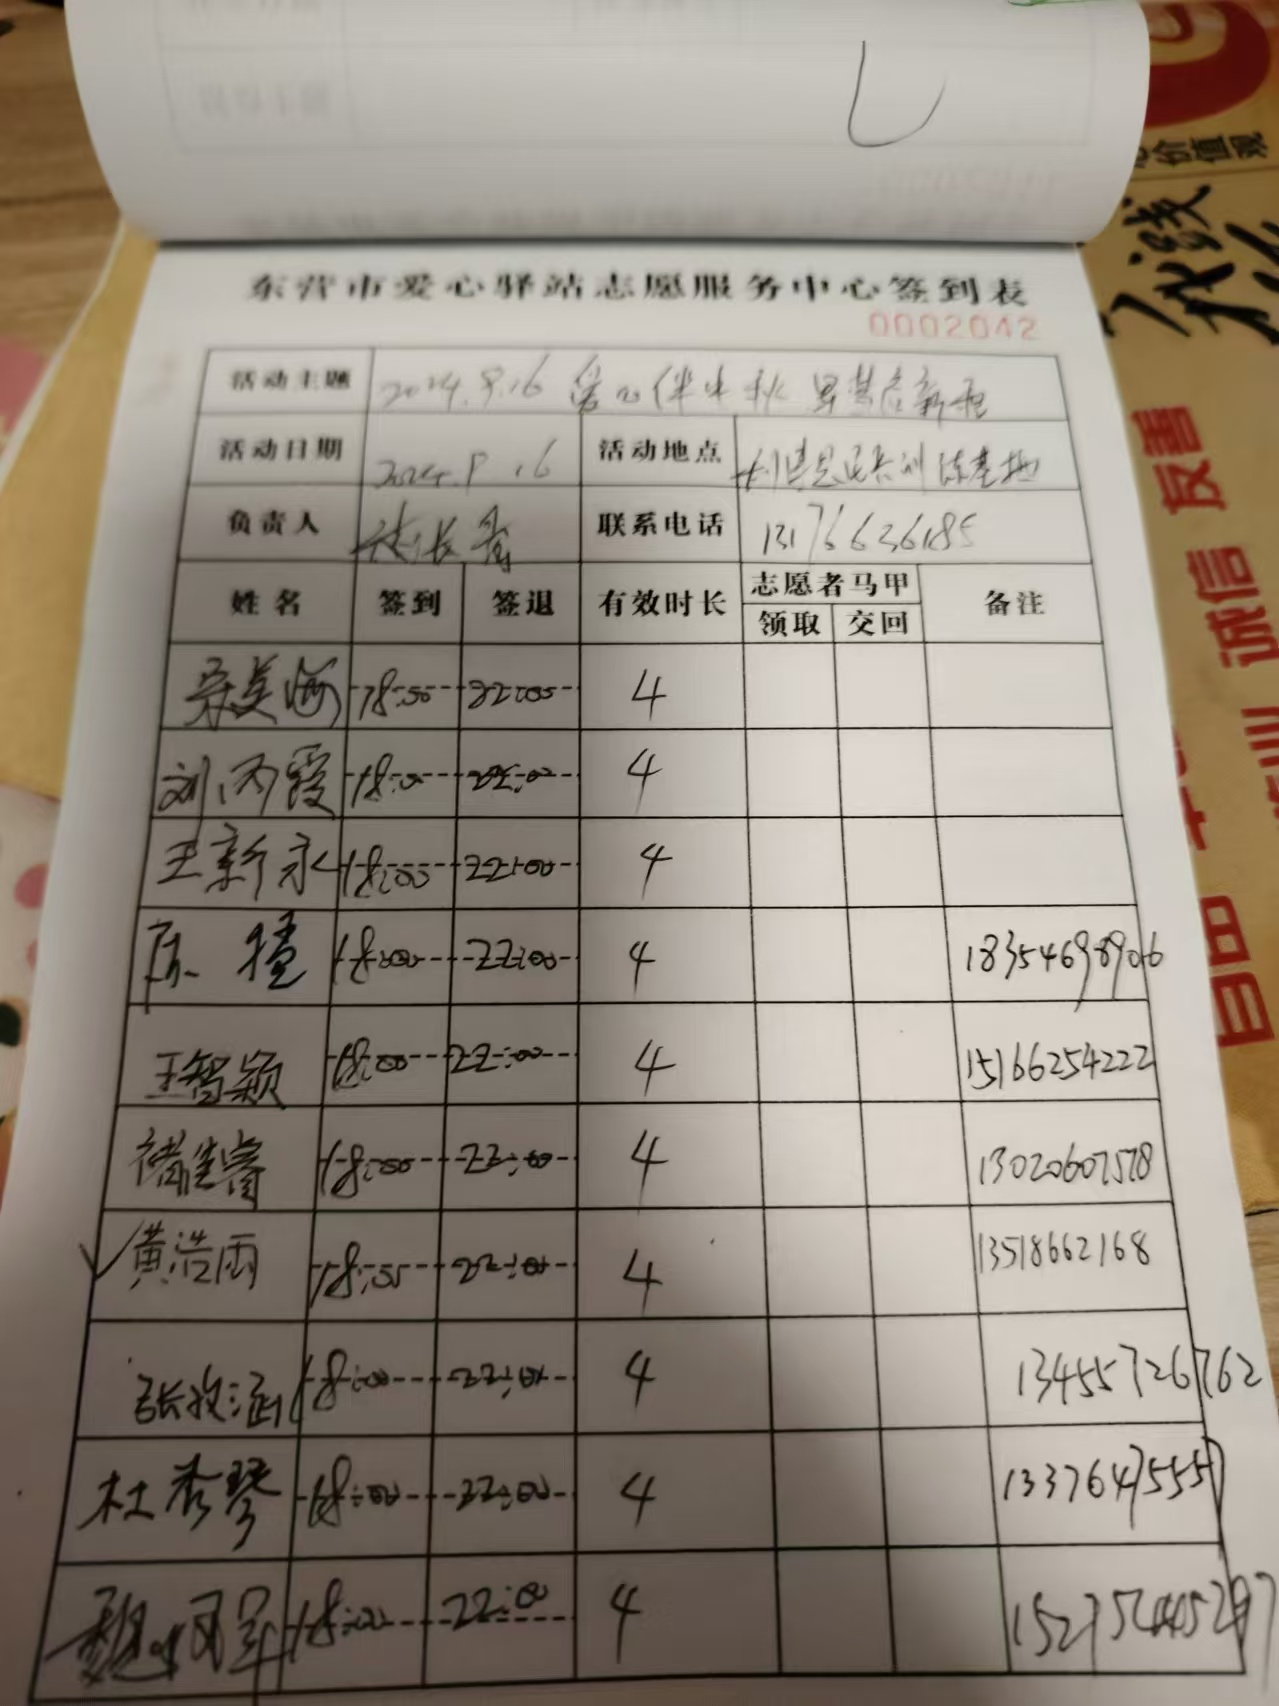 东营市爱心驿站志愿服务中心签到表
0002042
活动主题 2024.9.16 爱心伴中秋
活动日期 2024.9.16 活动地点
负责人 联系电话 13176636185
姓名 签到 签退 有效时长 志愿者马甲 备注
领取 交回
18:00 22:00 4
刘丙霞 18:00 22:00 4
王新永 18:00 22:00 4
18:00 22:00 4 18354698906
王智颖 18:00 22:00 4 15166254222
18:00 22:00 4 13020607578
黄浩雨 18:00 22:00 4 13518662168
张牧涵 18:00 22:00 4 13455726762
杜秀琴 18:00 22:00 4 13376475557
18:00 22:00 4
价值观
友善
诚信